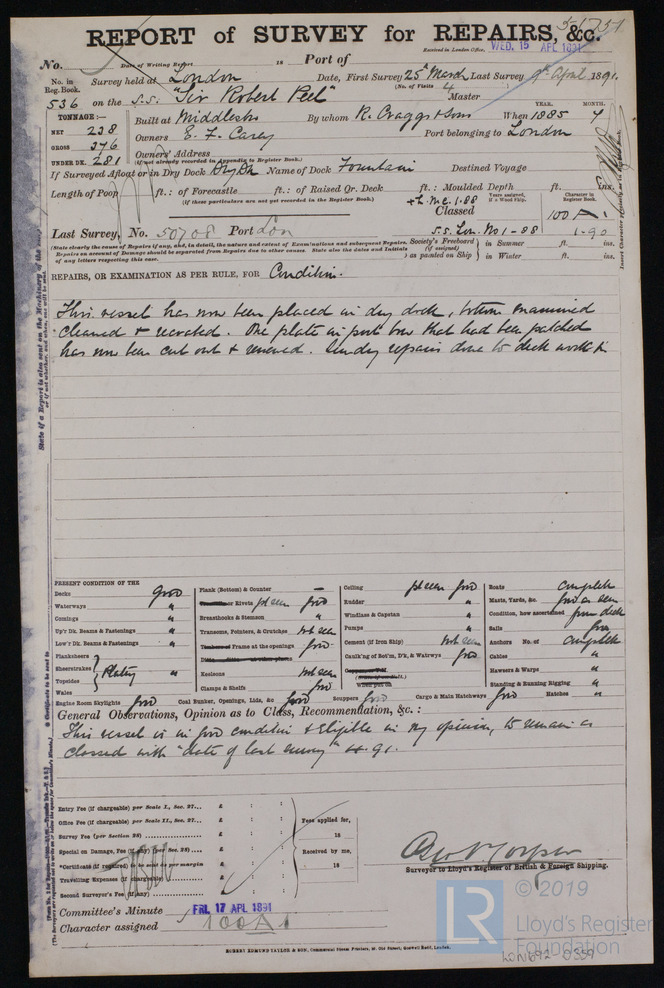 51751
REPORT of SURVEY for REPAIRS, &c.
Received in London Office, WED. 15 APL 1891
No. Date of Writing Report 18 Port of
No. in Reg. Book. Survey held at London Date, First Survey 25th March Last Survey 9th April 1891.
(No. of Visits 4
536 on the s.s. "Sir Robert Peel" Master
TONNAGE:— YEAR. MONTH.
NET 238 Built at Middlesbro By whom R. Craggs & Sons When 1885 4
GROSS 376 Owners E. F. Carey Port belonging to London
UNDER DK. 281 Owners' Address
(if not already recorded in Appendix to Register Book.)
If Surveyed Afloat or in Dry Dock Dry Dk Name of Dock Fountain Destined Voyage
Length of Poop ft.: of Forecastle ft.: of Raised Qr. Deck ft.: Moulded Depth ft. ins.
(If these particulars are not yet recorded in the Register Book.)
Years assigned, if a Wood Ship. Character in Register Book.
+L.M.C. 1.88
Classed 100 A 1
Last Survey, No. 50708 Port Lon s.s. Lon. No 1-88 1-90
(State clearly the cause of Repairs, if any, and, in detail, the nature and extent of Examinations and subsequent Repairs.
Repairs on account of Damage should be separated from Repairs due to other causes. State also the dates and Initials
of any letters respecting this case.)
Society's Freeboard (if assigned) as painted on Ship in Summer ft. ins.
in Winter ft. ins.
REPAIRS, OR EXAMINATION AS PER RULE, FOR Condition.
This vessel has now been placed in dry dock, bottom examined
cleaned & recoated. One plate in port bow that had been patched
has now been cut out & renewed. Sundry repairs done to deck work &c
PRESENT CONDITION OF THE
Decks good
Waterways "
Comings "
Up'r Dk. Beams & Fastenings "
Low'r Dk. Beams & Fastenings "
Planksheers
Sheerstrakes
Topsides
Wales
Plating "
Plank (Bottom) & Counter —
or Rivets pt seen good
Breasthooks & Stemson "
Transoms, Pointers, & Crutches not seen
Frame at the openings good
Keelsons not seen
Clamps & Shelfs good
Ceiling pt seen good
Rudder "
Windlass & Capstan "
Pumps "
Cement (if Iron Ship) not seen
Caulk'ng of Bot'm, D'k, & Watrwys good
Boats complete
Masts, Yards, &c. good as seen
Condition, how ascertained from deck
Sails good
Anchors No. of complete
Cables "
Hawsers & Warps "
Standing & Running Rigging "
Engine Room Skylights good Coal Bunker, Openings, Lids, &c good Scuppers good Cargo & Main Hatchways good Hatches "
General Observations, Opinion as to Class, Recommendation, &c.:
This vessel is in good condition & Eligible in my opinion, to remain as
classed with "date of last survey" 4.91.
Entry Fee (if chargeable) per Scale I., Sec. 27... £ : :
Office Fee (if chargeable) per Scale II., Sec. 27... £ : :
Survey Fee (per Section 28) £ : :
Special on Damage, Fee (if any) (per Sec. 28) £ : :
*Certificate (if required) to be sent as per margin
Travelling Expenses (if chargeable) £ : :
Second Surveyor's Fee (if any) £ : :
Fees applied for, 18
Received by me, 18
Surveyor to Lloyd's Register of British & Foreign Shipping.
Committee's Minute FRI. 17 APL 1891
Character assigned 100A1
ROBERT EDMUND TAYLOR & SON, Commercial Steam Printers, 19, Old Street, Goswell Road, London.
LR
© 2019
Lloyd's Register
Foundation
LON692-0359